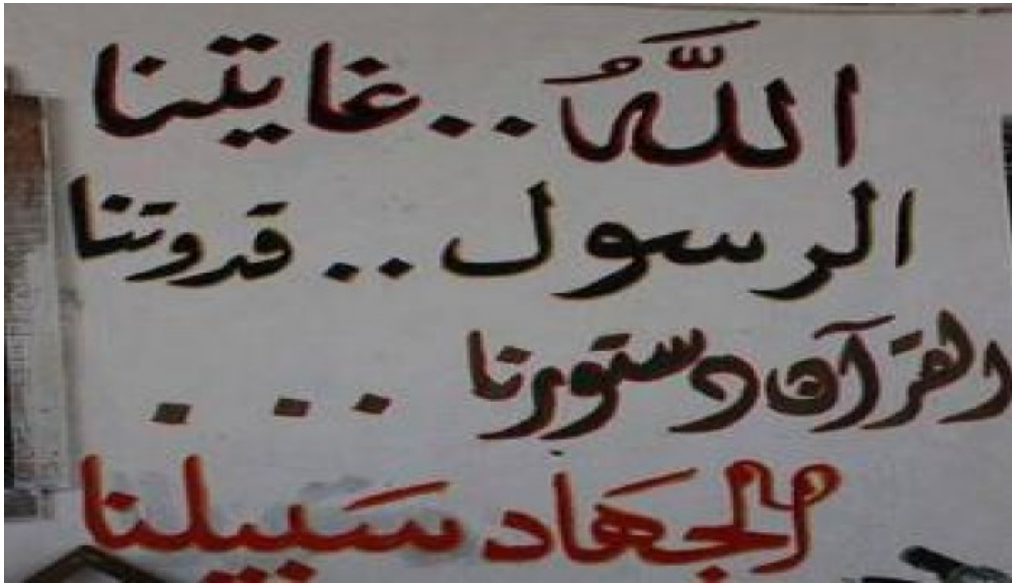 اللَّهُ .. غايتنا
الرسول .. قدوتنا
القرآن دستورنا ...
الجهاد سَبيلنا